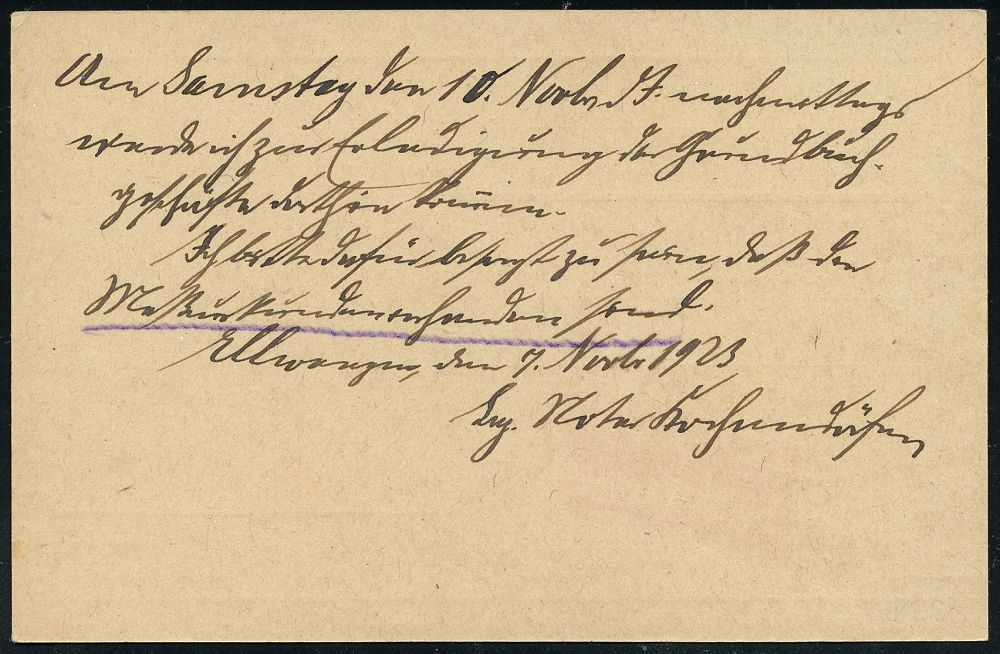 Am Samstag den 10. Novbr. d. J. nachmittags
werde ich zur Erledigung der Grundbuch-
geschäfte dorthin kommen.
Ich bitte dafür besorgt zu sein, daß die
Meßurkunden vorhanden sind.
Ellwangen, den 7. Novbr 1923
Bez. Notar Kochendörfer